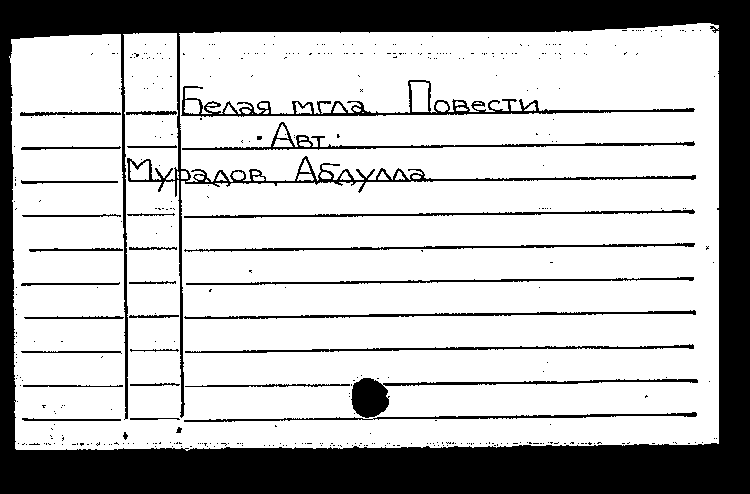 Белая мгла. Повести.
Авт.:
Мурадов, Абдулла.